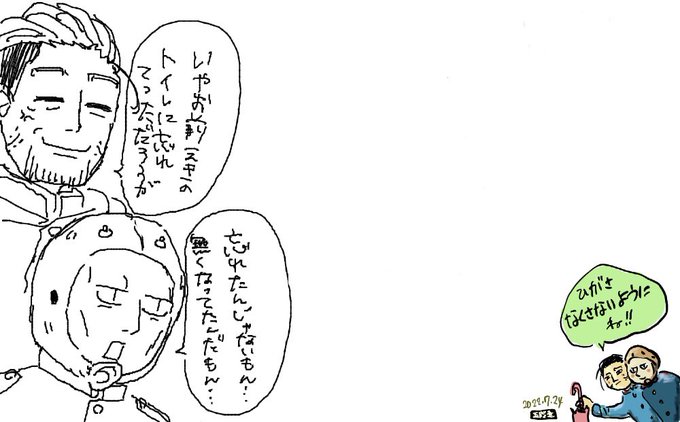 いやお前の
トイレに忘れ
てっただろうが
忘れたんじゃないもん…
無くなってたんだもん…
ひがさ
なくさないように
ね!!
2022.7.24